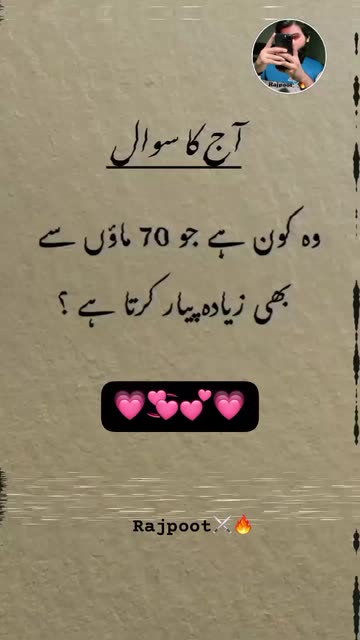 Rajpoot🔥
آج کا سوال
وہ کون ہے جو 70 ماؤں سے
بھی زیادہ پیار کرتا ہے ؟
💗💞💕💗
Rajpoot⚔️🔥